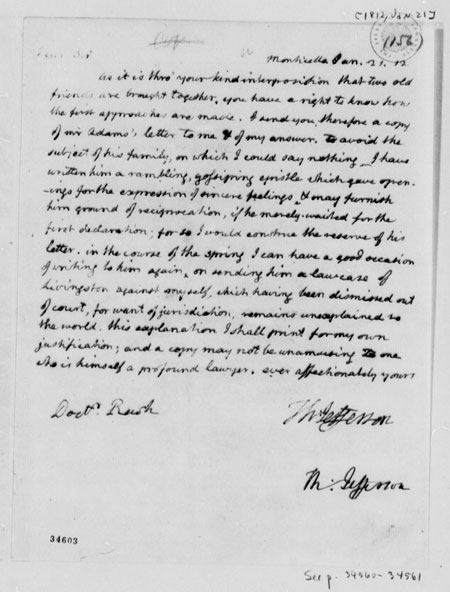 [1812, Jan 21]
(156)
Dear Sir
Monticello Jan. 21. 12
As it is thro' your kind interposition that two old
friends are brought together, you have a right to know how
the first approaches are made. I send you therefore a copy
of mr Adams's letter to me & of my answer. to avoid the
subject of his family, on which I could say nothing, I have
written him a rambling, gossiping epistle which gave open-
ings for the expression of sincere feelings, & may furnish
him ground of reciprocation, if he merely waited for the
first declaration; for so I would construe the reserve of his
letter. in the course of the spring I can have a good occasion
of writing to him again, on sending him a law case of
Livingston against myself, which having been dismissed out
of court, for want of jurisdiction, remains unexplained to
the world. this explanation I shall print for my own
justification; and a copy may not be unamusing to one
who is himself a profound lawyer. ever affectionately yours
Th: Jefferson
Doctr. Rush
Th: Jefferson
34603
See p. 34560-34561